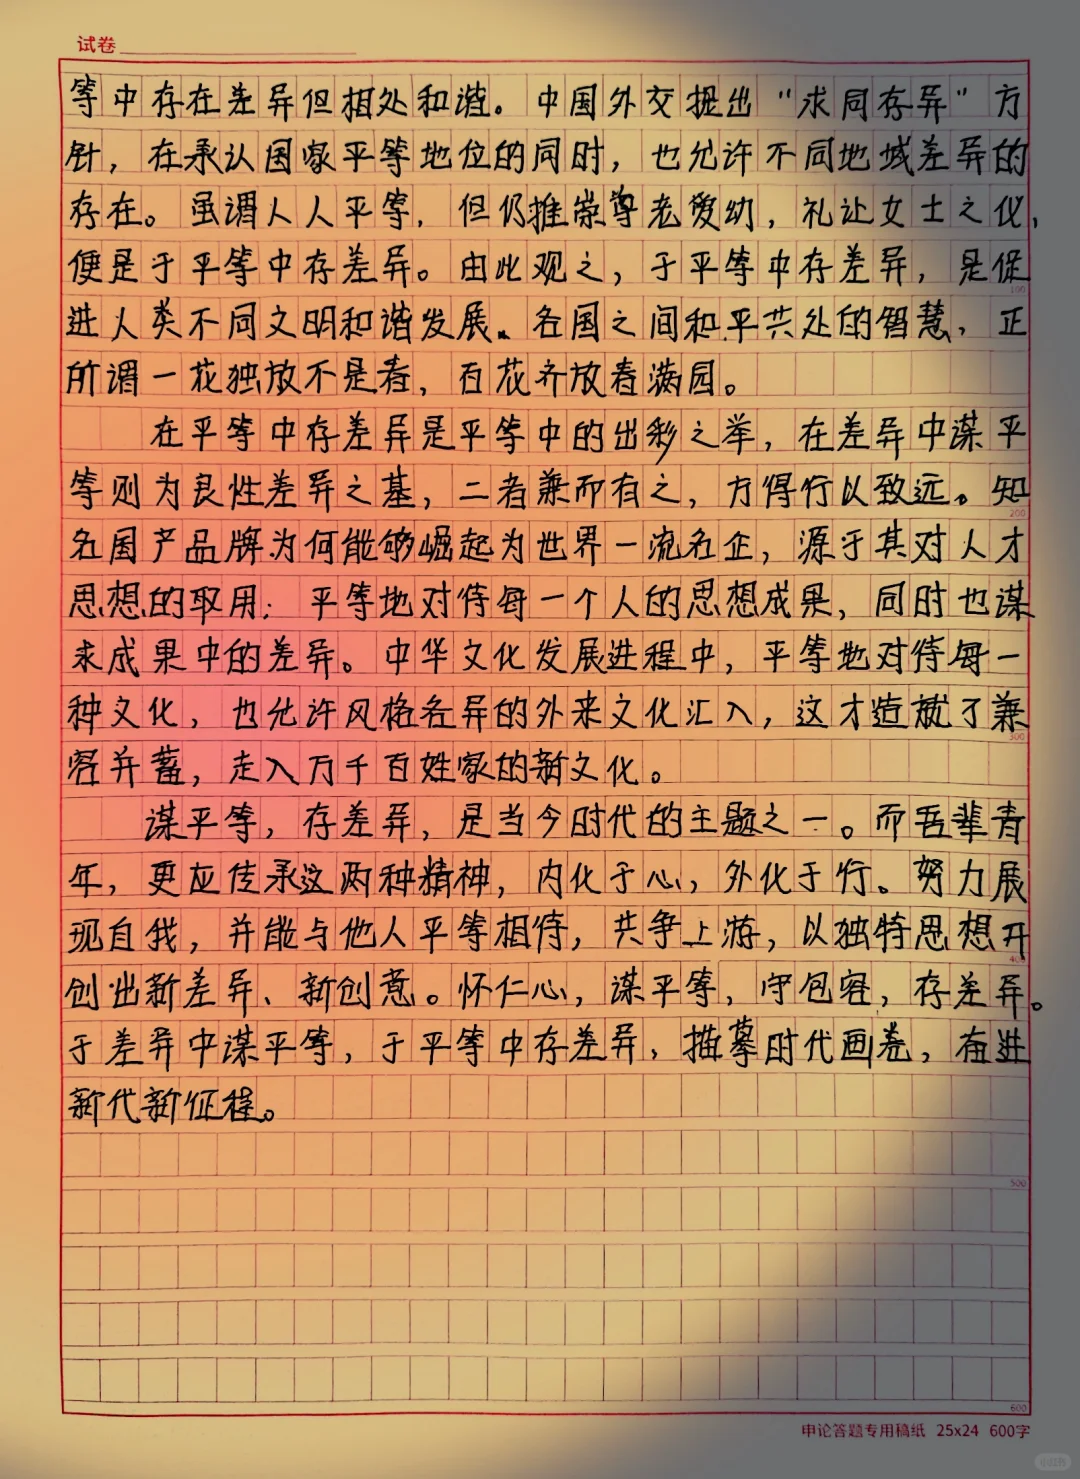 试卷
等中存在差异但相处和谐。中国外交提出“求同存异”方
针，在承认国家平等地位的同时，也允许不同地域差异的
存在。虽谓人人平等，但仍推崇尊老爱幼，礼让女士之仪，
便是于平等中存差异。由此观之，于平等中存差异，是促
100
进人类不同文明和谐发展、各国之间和平共处的智慧，正
所谓一花独放不是春，百花齐放春满园。
在平等中存差异是平等中的出彩之举，在差异中谋平
等则为良性差异之基，二者兼而有之，方得行以致远。知
200
名国产品牌为何能够崛起为世界一流名企，源于其对人才
思想的取用：平等地对待每一个人的思想成果，同时也谋
求成果中的差异。中华文化发展进程中，平等地对待每一
种文化，也允许风格各异的外来文化汇入，这才造就了兼
300
容并蓄，走入万千百姓家的新文化。
谋平等，存差异，是当今时代的主题之一。而吾辈青
年，更应传承这两种精神，内化于心，外化于行。努力展
现自我，并能与他人平等相待，共争上游，以独特思想开
400
创出新差异、新创意。怀仁心，谋平等，守包容，存差异。
于差异中谋平等，于平等中存差异，描摹时代画卷，奋进
新代新征程。
500
600
申论答题专用稿纸 25x24 600字
小红书